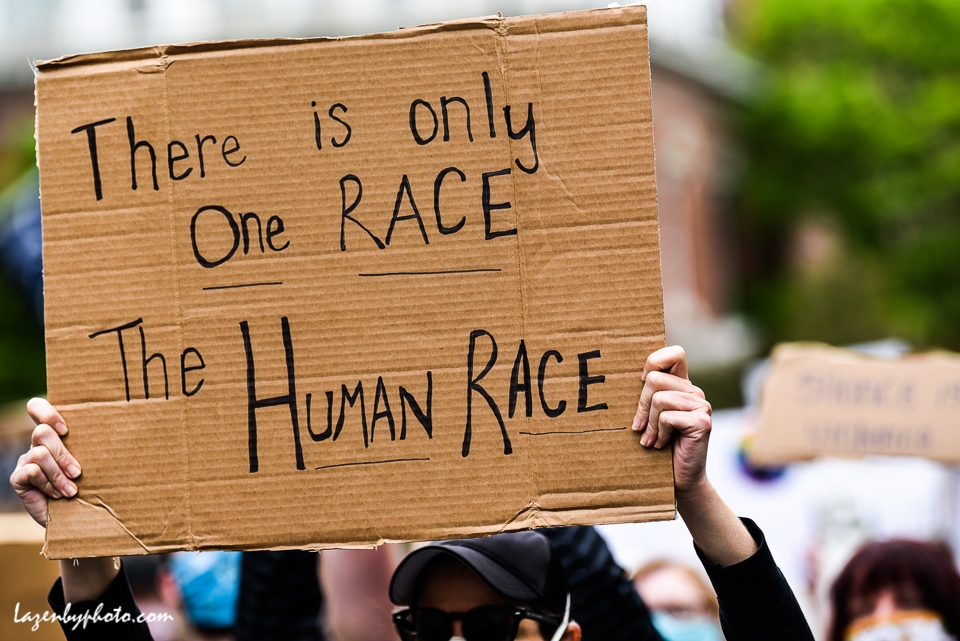 There is only
One RACE
The HUMAN RACE
SILENCE IS
Lazenbyphoto.com